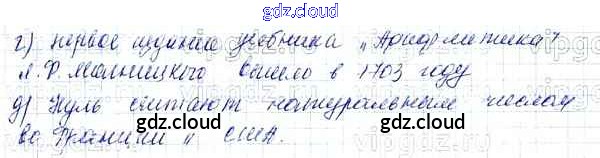 gdz.cloud
г) первое издание учебника „Арифметика"
Л.Ф. Магницкого вышло в 1703 году
gdz.cloud gdz.cloud
д) Нуль считают натуральным числом
во Франции и США.
gdz.cloud gdz.cloud